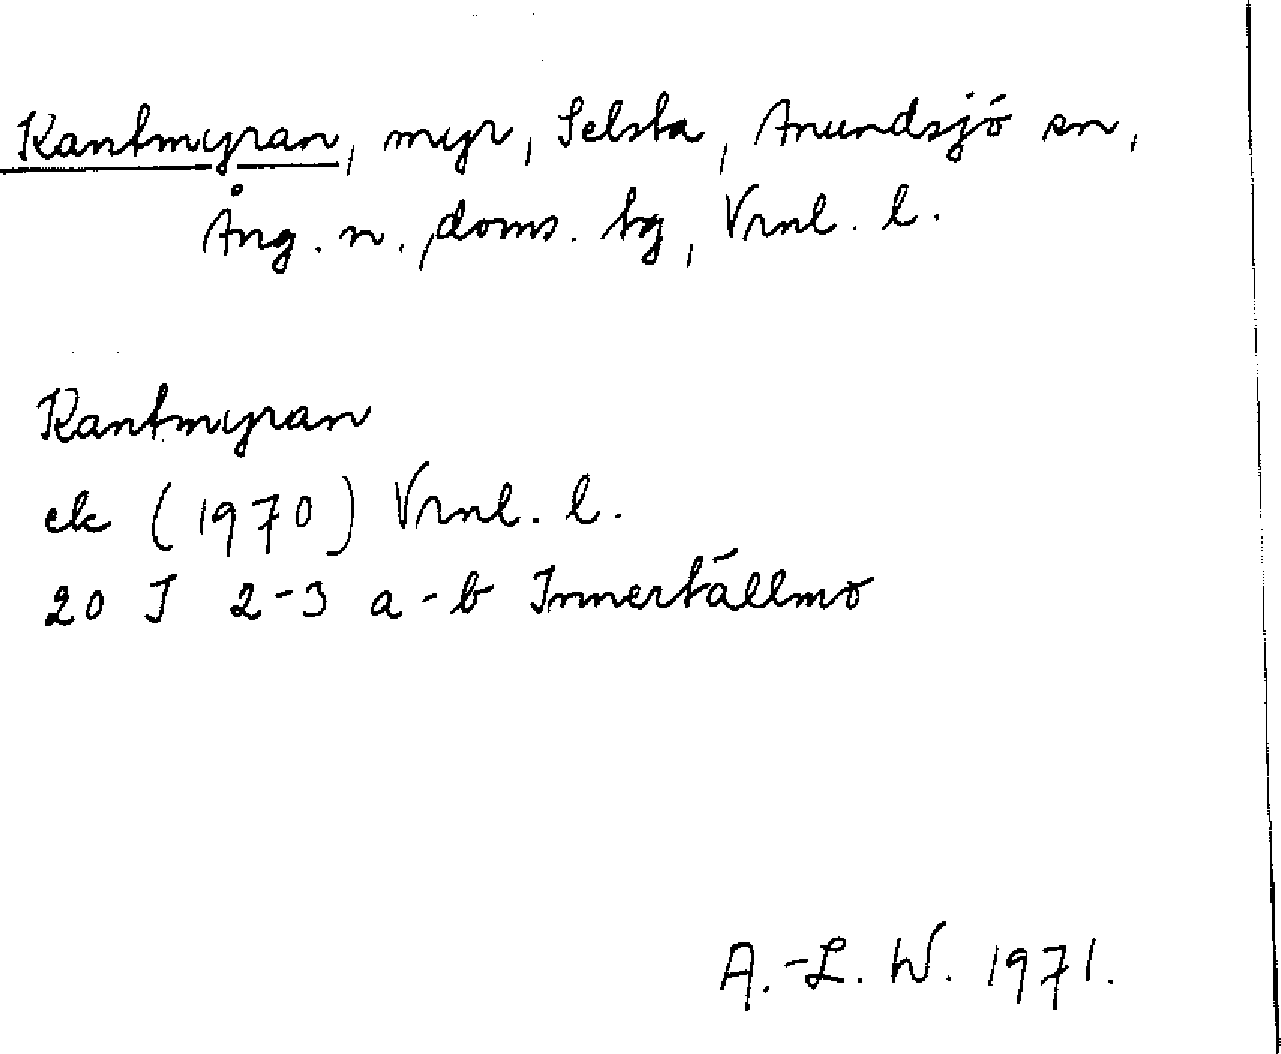 Kantmyran, myr, Selsta, Anundsjö sn,
Ång. n. doms. bg, Vrnl. l.
Kantmyran
ek (1970) Vrnl. l.
20 J 2-3 a-b Innertällmo
A.-L. W. 1971.